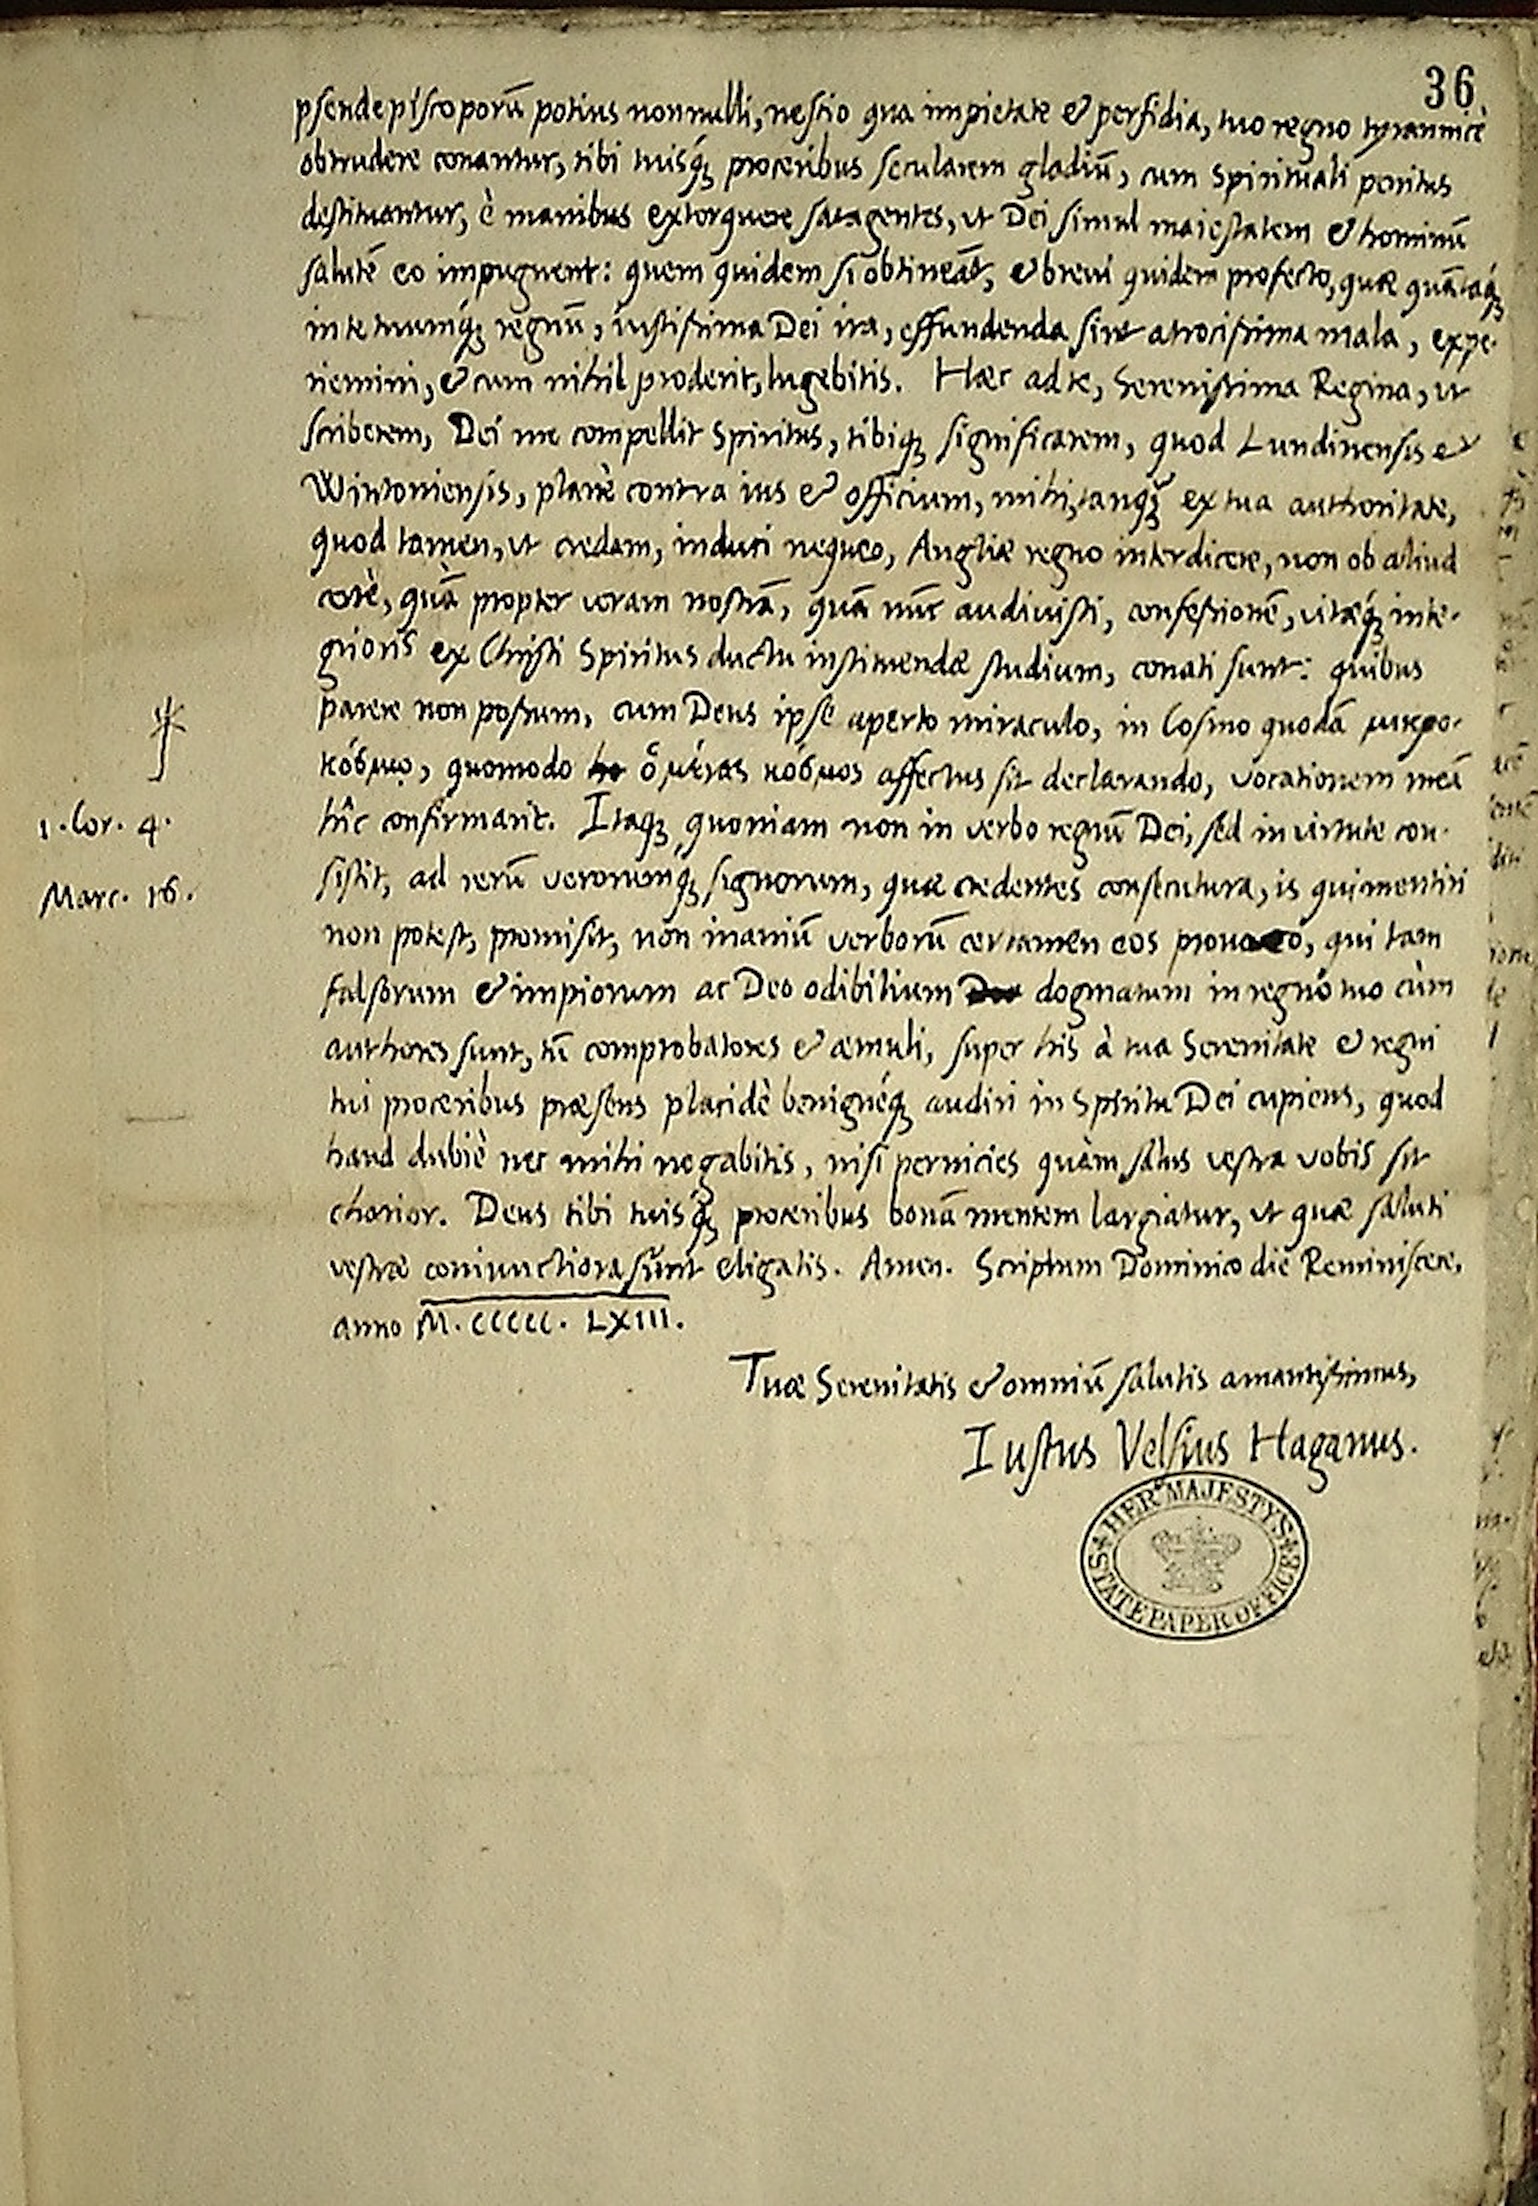 36
pseudepiscoporū potius nonnulli, nescio qua impietate & perfidia, tuo regno tyrannicè
obtrudere conantur, tibi tuisq́ꝫ proceribus secularem gladiū, cum spirituali penitus
destituantur, è manibus extorquere satagentes, ut Dei simul maiestatem & hominū
salutē eo impugnent: quem quidem si obtineāt, & brevi quidem profecto, quæ quātaq́ꝫ
in te tuumq́ꝫ regnū, iustissima Dei ira, effundenda sint atrocissima mala, expe-
riemini, & cum nihil proderit, lugebitis. Hæc ad te, Serenissima Regina, ut
scriberem, Dei me compellit Spiritus, tibiqꝫ significarem, quod Lundinensis &
Wintoniensis, planè contra ius & officium, mihi, tanqꝫ̃ ex tua authoritate,
quod tamen, ut credam, induci nequeo, Angliæ regno interdicere, non ob aliud
certè, quā̀ propter veram nostrā, quā nūc audivisti, confessionē, vitæq́ꝫ inte-
grioris ex Christi Spiritus ductu instituendæ studium, conati sunt: quibus
parere non possum, cum Deus ipse aperto miraculo, in Cosmo quodā μικρο-
κόσμῳ, quomodo ὁ μέγας κόσμος affectus sit declarando, vocationem meā
1. Cor. 4.
hîc confirmarit. Itaqꝫ, quoniam non in verbo regnū Dei, sed in virtute con-
Marc. 16.
sistit, ad rerū verorumq́ꝫ signorum, quæ credentes consecutura, is qui mentiri
non potest, promisit, non inaniū verborū certamen eos provoco, qui tam
falsorum & impiorum ac Deo odibilium dogmatum in regno tuo cùm
authores sunt, tū comprobatores & æmuli, super his à tua Serenitate & regni
tui proceribus præsens placidè benignéqꝫ audiri in Spiritu Dei cupiens, quod
haud dubiè nec mihi negabitis, nisi pernicies quàm salus vestra vobis sit
charior. Deus tibi tuisq́ꝫ proceribus bonā mentem largiatur, ut quæ saluti
vestræ coniunctiora sunt eligatis. Amen. Scriptum Dominico die Reminiscere,
anno M. CCCCC. LXIII.
Tuæ Serenitatis & omniū salutis amantissimus,
Iustus Velsius Haganus.
HER MAJESTYS
STATE PAPER OFFICE